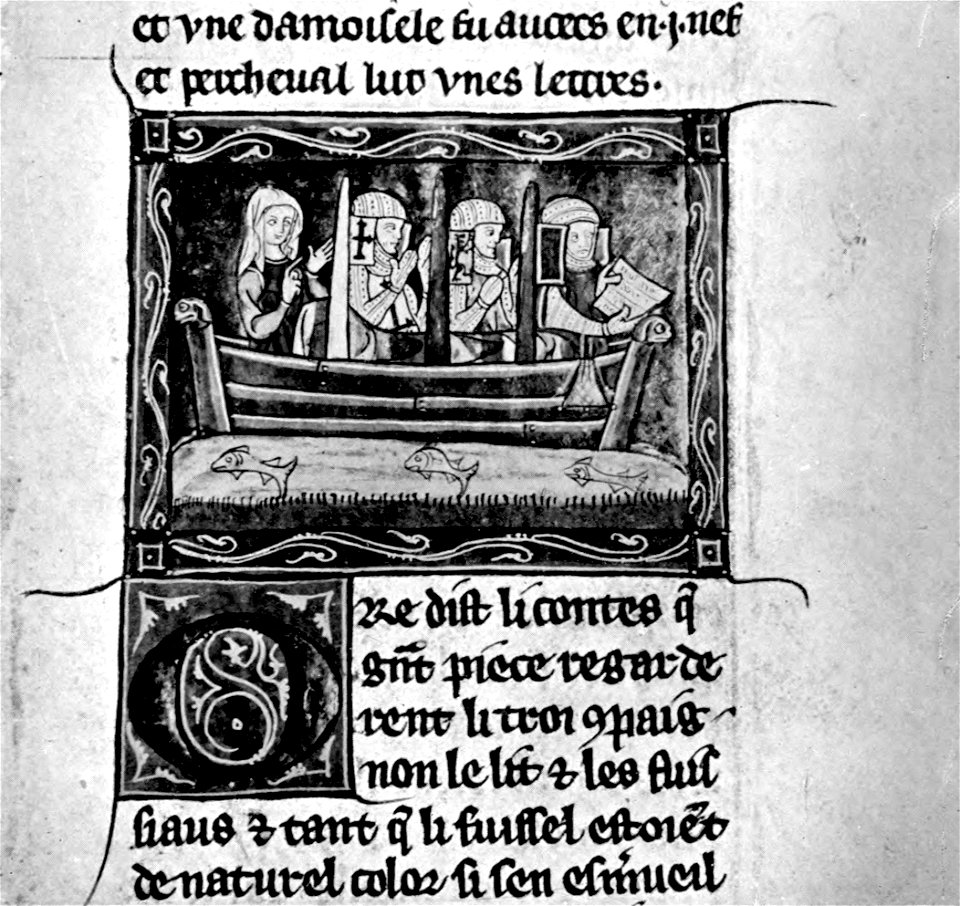 et vne damoisele fu auoecs en .j. nef
et percheual lut vnes lettres.
Ore dist li contes q̄
gn̄t piece regarde
rent li troi ꝯpaig
non le lit ⁊ les fuis
siaus ⁊ tant q̄ li fuissel estoiēt
de naturel color si sen esm̄ueil